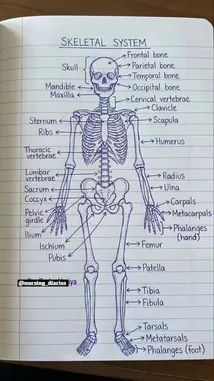 SKELETAL SYSTEM
Frontal bone
Parietal bone
Skull
Temporal bone
Mandible
Occipital bone
Maxilla
Cervical vertebrae
Clavicle
Sternum
Scapula
Ribs
Humerus
Thoracic
vertebrae
Lumbar
vertebrae
Radius
Sacrum
Ulna
Coccyx
Carpals
Pelvic
girdle
Metacarpals
Ilium
Phalanges
(hand)
Ischium
Femur
Pubis
Patella
@nursing_diaries
Tibia
Fibula
Tarsals
Metatarsals
Phalanges (foot)